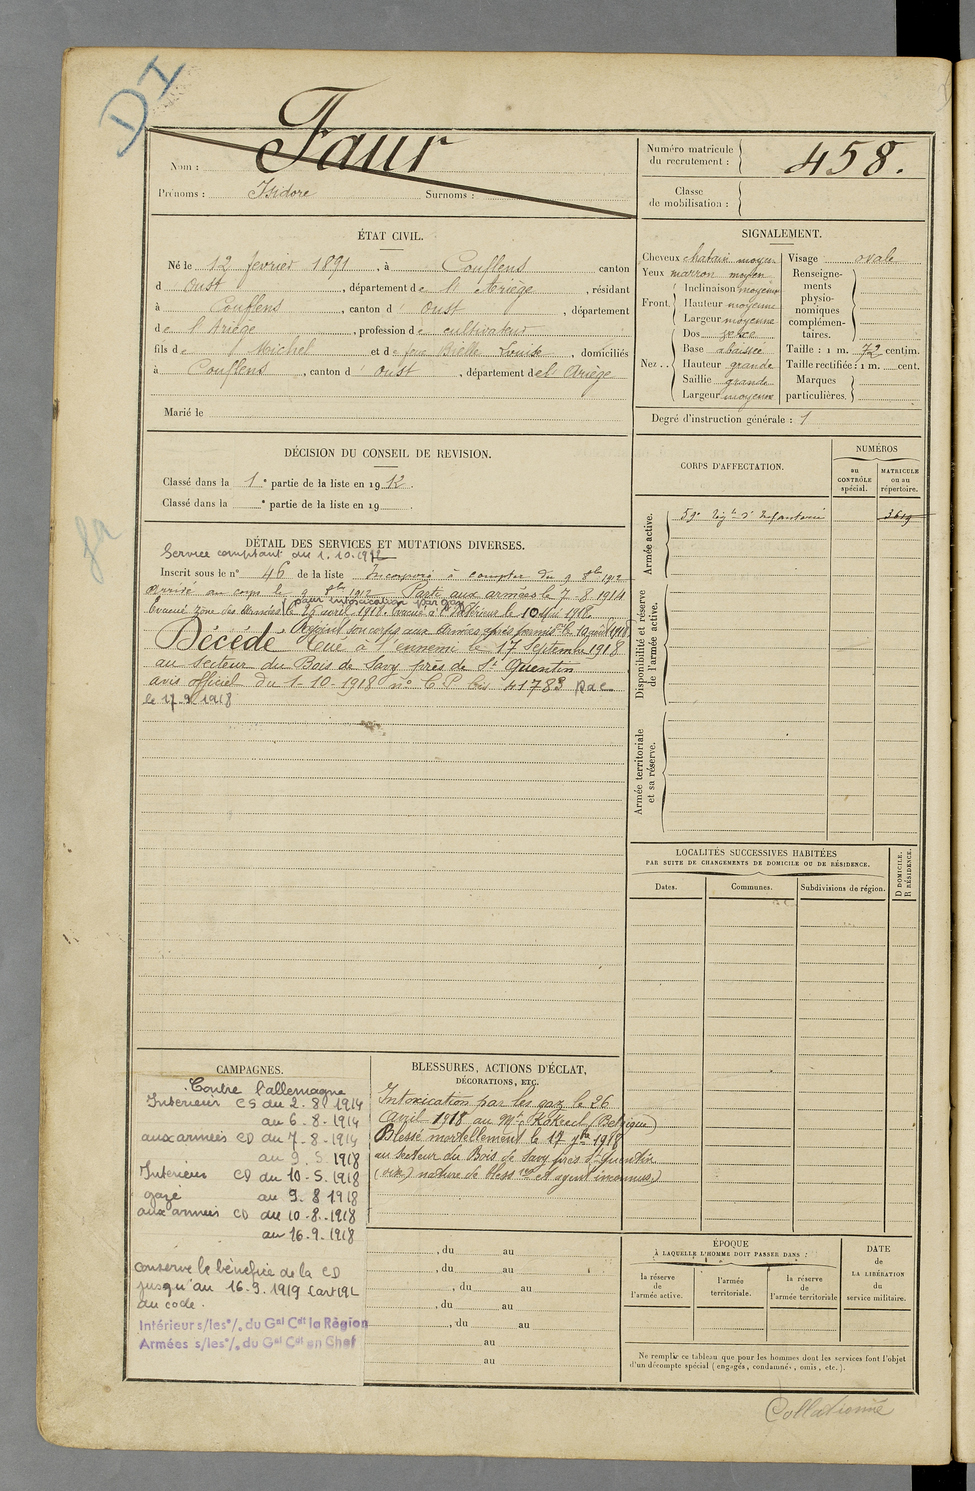 DI
Nom : Faur
Prénoms : Isidore Surnoms :
Numéro matricule du recrutement : 458.
Classe de mobilisation :
ÉTAT CIVIL.
Né le 12 fevrier 1891, à Couflens canton
d Oust, département de l'Ariège, résidant
à Couflens, canton d'Oust, département
de l'Ariège, profession de cultivateur
fils de Michel et de feue Bielle Louise, domiciliés
à Couflens, canton d'Oust, département de l'Ariège
Marié le
SIGNALEMENT.
Cheveux chatain moyen
Yeux marron moyen
Front. Inclinaison moyenne
Hauteur moyenne
Largeur moyenne
Nez . . Dos
Base abaissée
Hauteur grande
Saillie grande
Largeur moyenne
Visage ovale
Renseignements physionomiques complémentaires.
Taille : 1 m. 72 centim.
Taille rectifiée : 1 m. cent.
Marques particulières.
Degré d'instruction générale : 1
DÉCISION DU CONSEIL DE REVISION.
Classé dans la 1e partie de la liste en 1912.
Classé dans la e partie de la liste en 19 .
CORPS D'AFFECTATION.
NUMÉROS
au CONTRÔLE spécial.
MATRICULE ou au répertoire.
Armée active.
59e Regt d'Infanterie
Disponibilité et réserve de l'armée active.
Armée territoriale et sa réserve.
DÉTAIL DES SERVICES ET MUTATIONS DIVERSES.
Service comptant du 1.10.1912
Inscrit sous le n° 46 de la liste Incorporé à compter du 9 8bre 1912
Arrivé au corps le 9 8bre 1912 Parti aux armées le 7-8-1914
(pour intoxication par gaz)
Evacué zone des Armées le 26 avril 1918. Evacué à l'Intérieur le 10 Mai 1918.
Rejoint son corps aux armées après permon le 10 août 1918
Décédé Tué à l'ennemi le 17 Septembre 1918
au secteur du Bois de Savy près de St Quentin
avis officiel du 1-10-1918 n° C P bis 41783 Rac
le 17.9.1918
LOCALITÉS SUCCESSIVES HABITÉES
PAR SUITE DE CHANGEMENTS DE DOMICILE OU DE RÉSIDENCE.
Dates.
Communes.
Subdivisions de région.
D DOMICILE.
R RÉSIDENCE.
CAMPAGNES.
Contre l'allemagne
Interieur CS du 2.8.1914
au 6-8-1914
aux armées CD du 7-8-1914
au 9.5.1918
Interieur CD du 10-5-1918
gazé au 9.8 1918
aux armées CD du 10-8-1918
au 16-9-1918
conserve le bénéfice de la CD
jusqu'au 16.9.1919
du code.
Intérieur s/les o/. du Gal Cdt la Région
Armées s/les o/. du Gal Cdt en Chef
BLESSURES, ACTIONS D'ÉCLAT,
DÉCORATIONS, ETC.
Intoxication par les gaz le 26
Avril 1918 au Mt Kokeul (Belgique)
Blessé mortellement le 17 7bre 1918
au Secteur du Bois de Savy près St Quentin
nature de bless res et agent inconnus)
, du au
, du au
, du au
, du au
, du au
au
au
ÉPOQUE
À LAQUELLE L'HOMME DOIT PASSER DANS :
la réserve de l'armée active.
l'armée territoriale.
la réserve de l'armée territoriale
DATE de LA LIBÉRATION du service militaire.
Ne remplir ce tableau que pour les hommes dont les services font l'objet
d'un décompte spécial (engagés, condamnés, omis, etc.).
Collationné